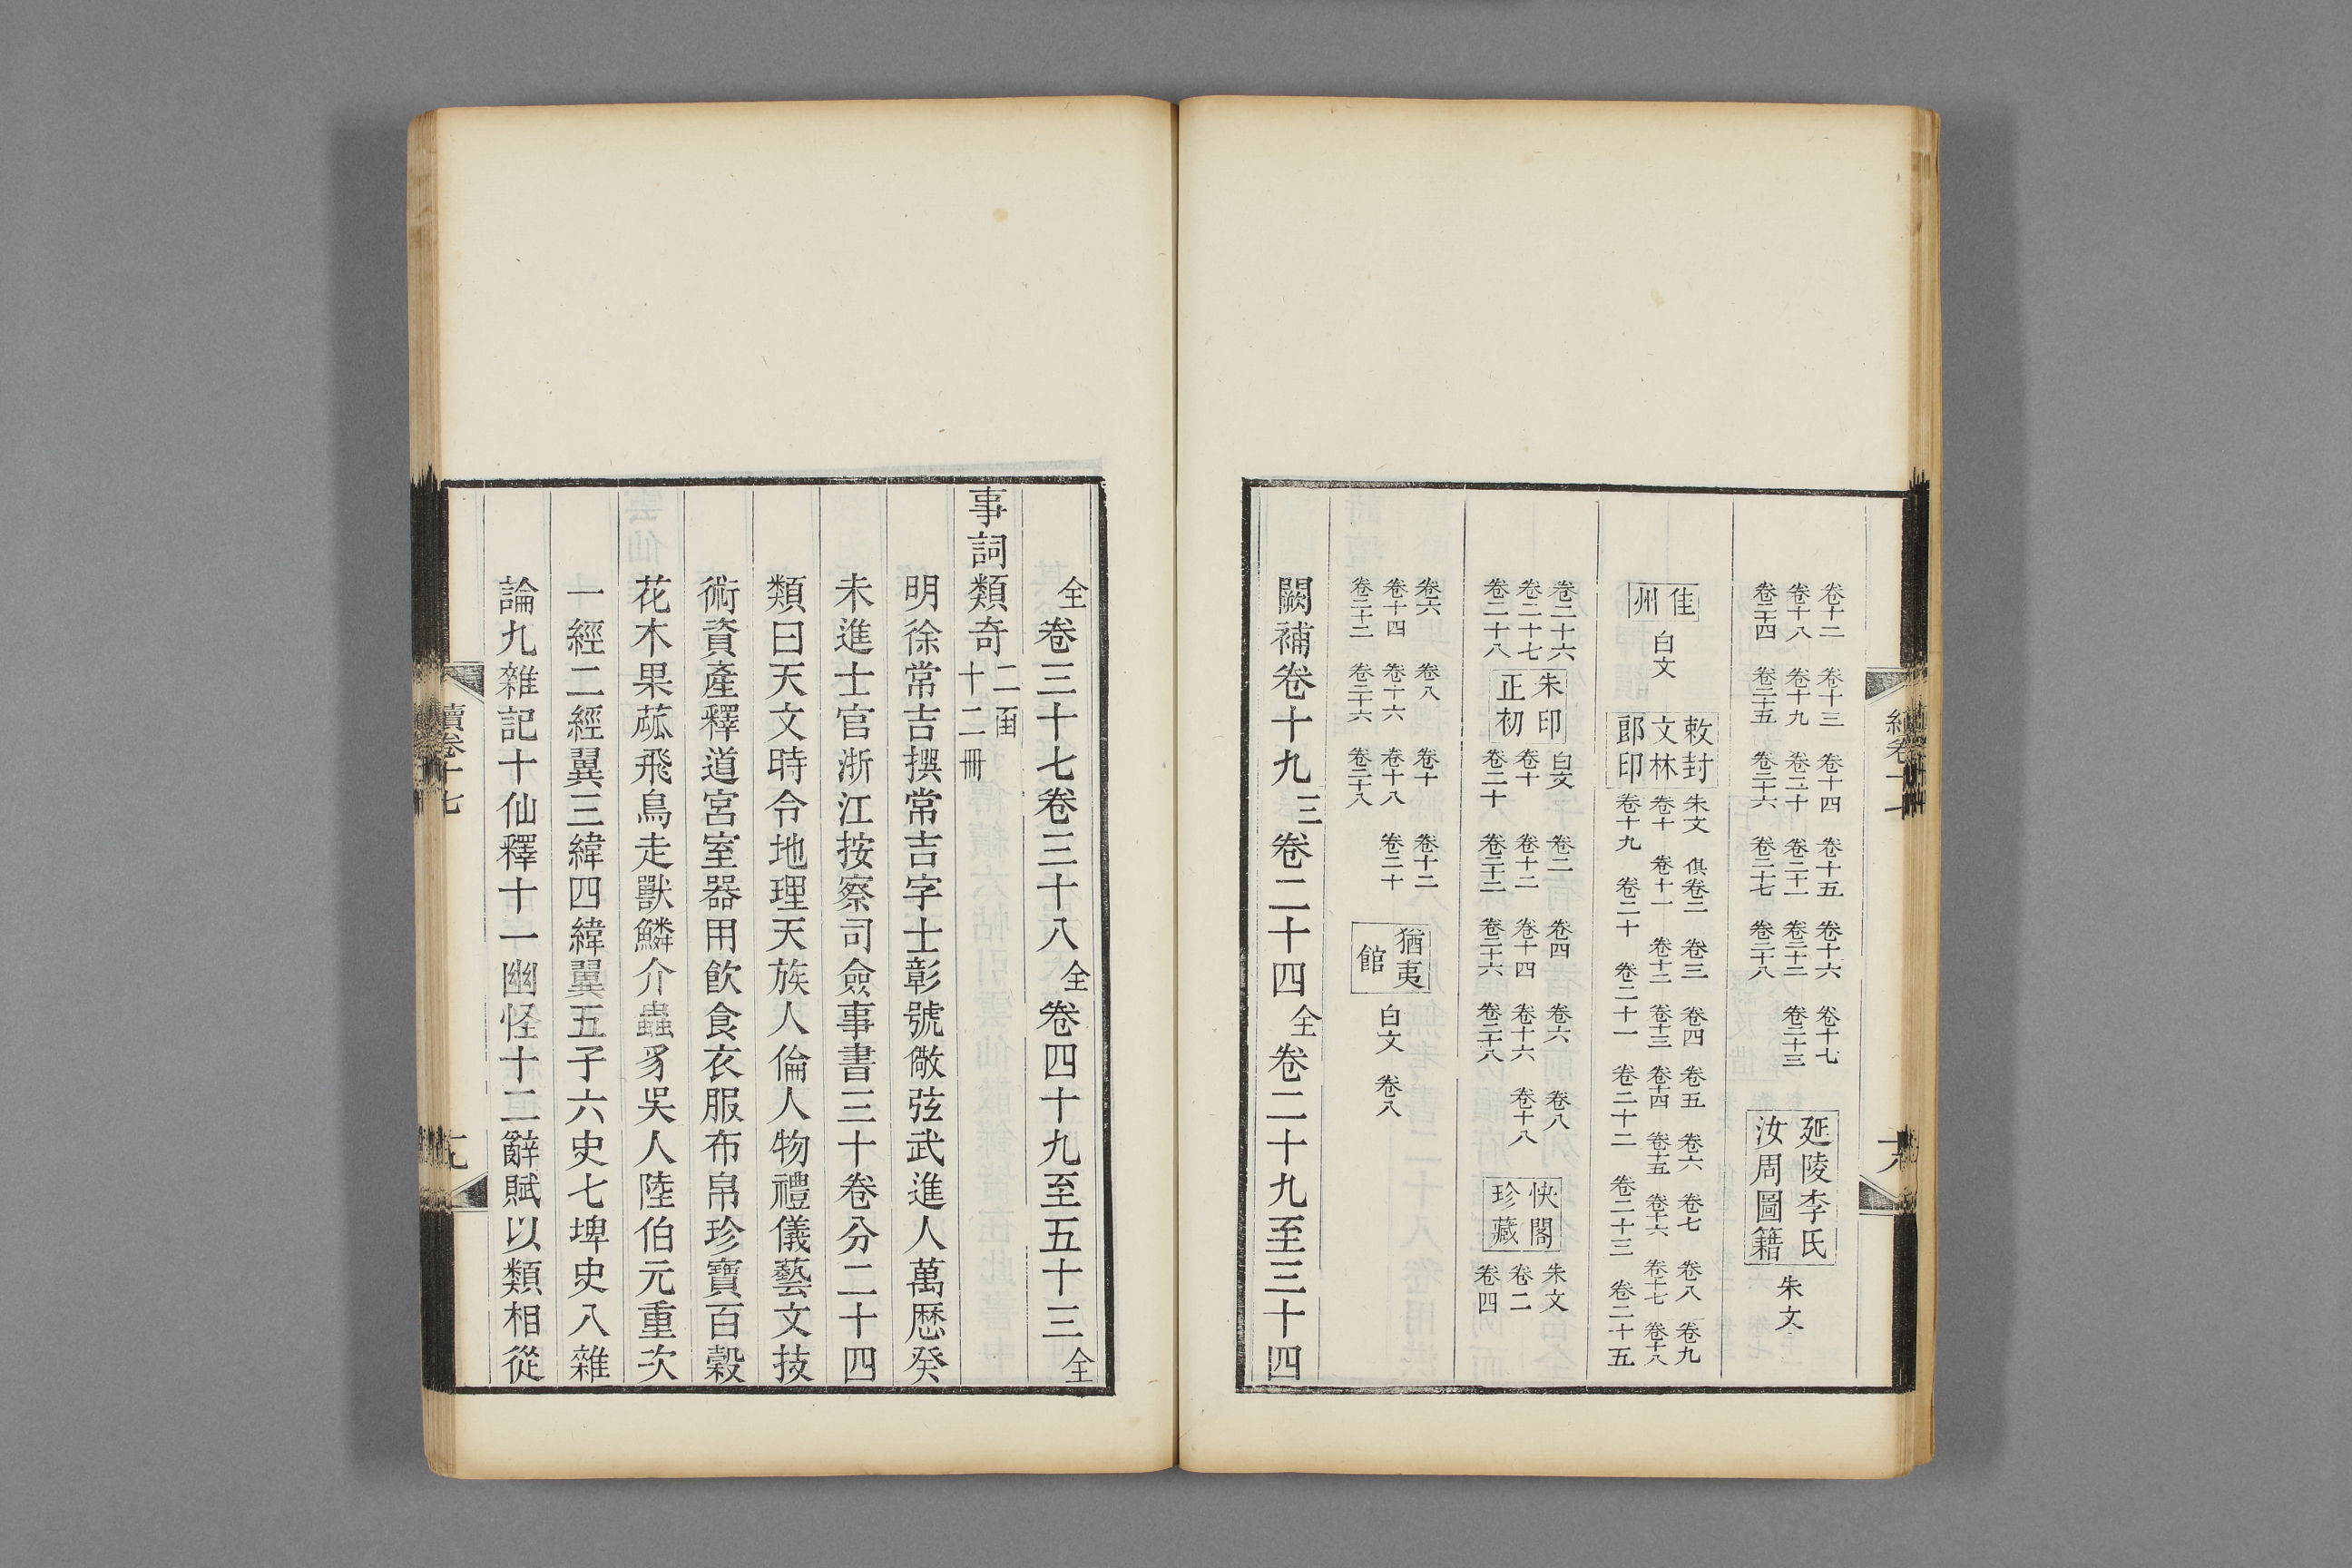 卷十二 卷十三 卷十四 卷十五 卷十六 卷十七
卷十八 卷十九 卷二十 卷二十一 卷二十二 卷二十三
卷二十四 卷二十五 卷二十六 卷二十七 卷二十八
延陵李氏
汝周圖籍
朱文
佳
州
白文
敕封
文林
郎印
朱文 俱卷二 卷三 卷四 卷五 卷六 卷七 卷八 卷九
卷十 卷十一 卷十二 卷十三 卷十四 卷十五 卷十六 卷十七 卷十八
卷十九 卷二十 卷二十一 卷二十二 卷二十三 卷二十五
卷二十六
卷二十七
卷二十八
朱印
正初
白文 卷二 卷四 卷六 卷八
卷十 卷十二 卷十四 卷十六 卷十八
卷二十 卷二十二 卷二十六 卷二十八
快閣
珍藏
朱文
卷二
卷四
卷六 卷八 卷十 卷十二
卷十四 卷十六 卷十八 卷二十
卷二十二 卷二十六 卷二十八
猶夷
館
白文 卷八
闕補卷十九三卷二十四全卷二十九至三十四
全卷三十七卷三十八全卷四十九至五十三全
事詞類奇二函
十二冊
明徐常吉撰常吉字士彰號儆弦武進人萬歷癸
未進士官浙江按察司僉事書三十卷分二十四
類曰天文時令地理天族人倫人物禮儀藝文技
術資產釋道宮室器用飲食衣服布帛珍寶百穀
花木果蓏飛鳥走獸鱗介蟲豸吳人陸伯元重次
一經二經翼三緯四緯翼五子六史七埤史八雜
論九雜記十仙釋十一幽怪十二辭賦以類相從
續卷十七